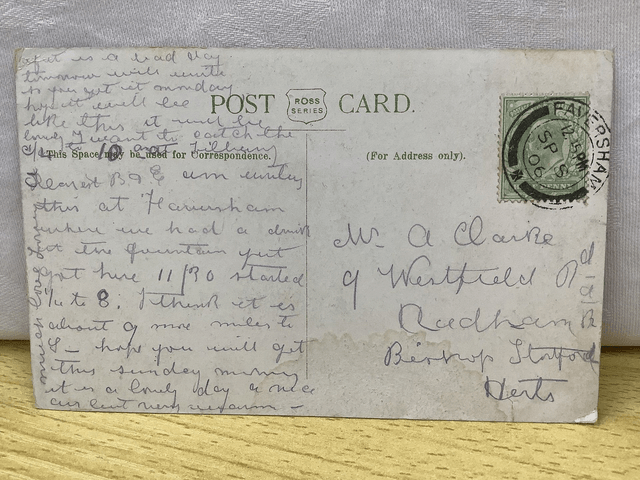 if it is a bad day
tomorrow will write
so you get it monday
hope it will be
like this it will be
lovely I want to catch the
10 at Tilbury
POST ROSS SERIES CARD.
This Space may be used for Correspondence.
(For Address only).
FAVERSHAM
SP 8
06
Dearest B & E am writing
this at Faversham
where we had a drink
at the fountain just
got here 11/30 started
1/4 to 8. I think it is
about 9 more miles to
S – hope you will get
this sunday morning
it is a lovely day a nice
air but very warm –
much love
Mr A Clarke
9 Westfield Rd
Hadham Rd
Bishop Stortford
Herts